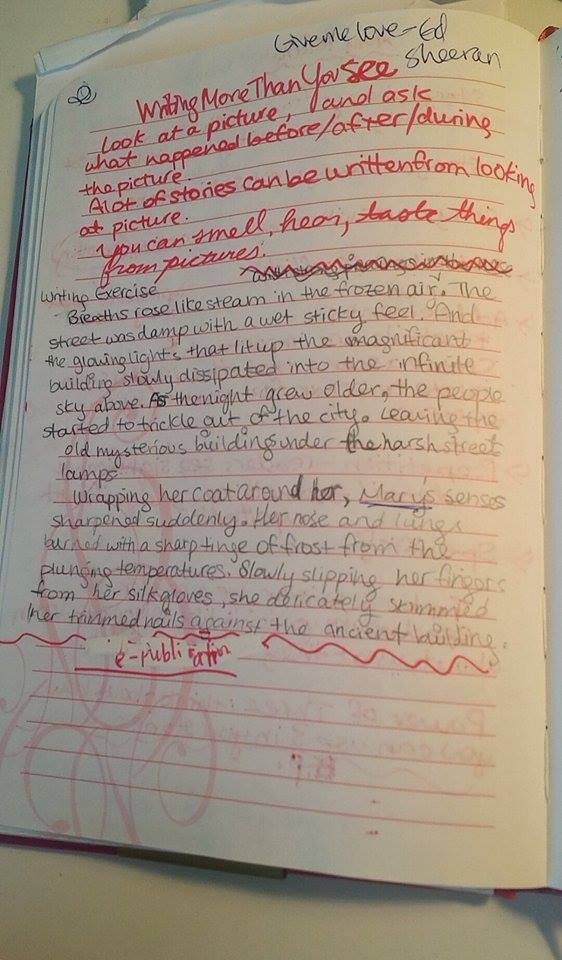 Give me love - Ed
Sheeran
Writing More Than You See
Look at a picture, and ask
what happened before/after/during
the picture.
A lot of stories can be written from looking
at picture.
You can smell, hear, taste things
from pictures.
Writing Exercise
Breaths rose like steam in the frozen air. The
street was damp with a wet sticky feel. And
the glowing lights that lit up the magnificant
building slowly dissipated into the infinite
sky above. As the night grew older, the people
started to trickle out of the city. Leaving the
old mysterious building under the harsh street
lamps
Wrapping her coat around her, Mary's senses
sharpened suddenly. Her nose and lungs
burned with a sharp tinge of frost from the
plunging temperatures. Slowly slipping her fingers
from her silk gloves, she delicately skimmed
her trimmed nails against the ancient building.
e-publication